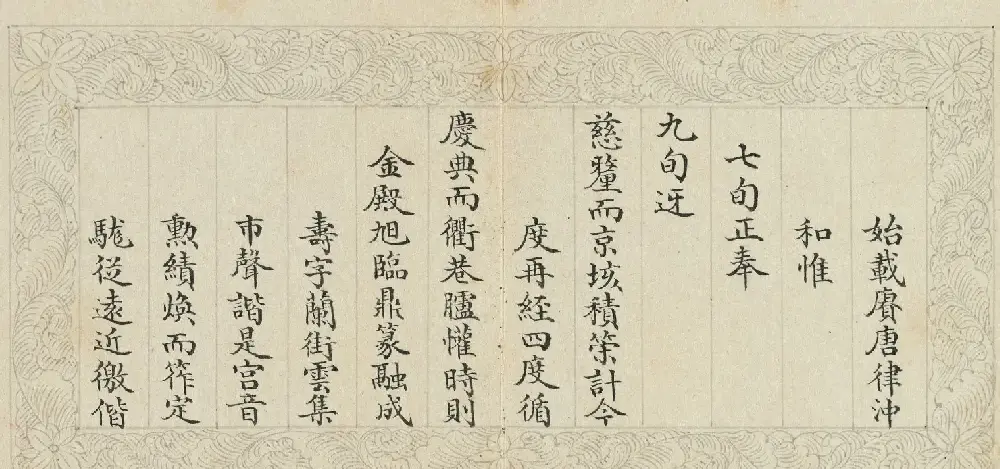 始載賡唐律沖
和惟
七旬正奉
九旬迓
慈釐而京垓積筭計今
度再経四度循
慶典而衢巷臚懽時則
金殿旭臨鼎篆融成
壽字蘭街雲集
市聲諧是宮音
勲績煥而筰定
駹從遠近徼偕